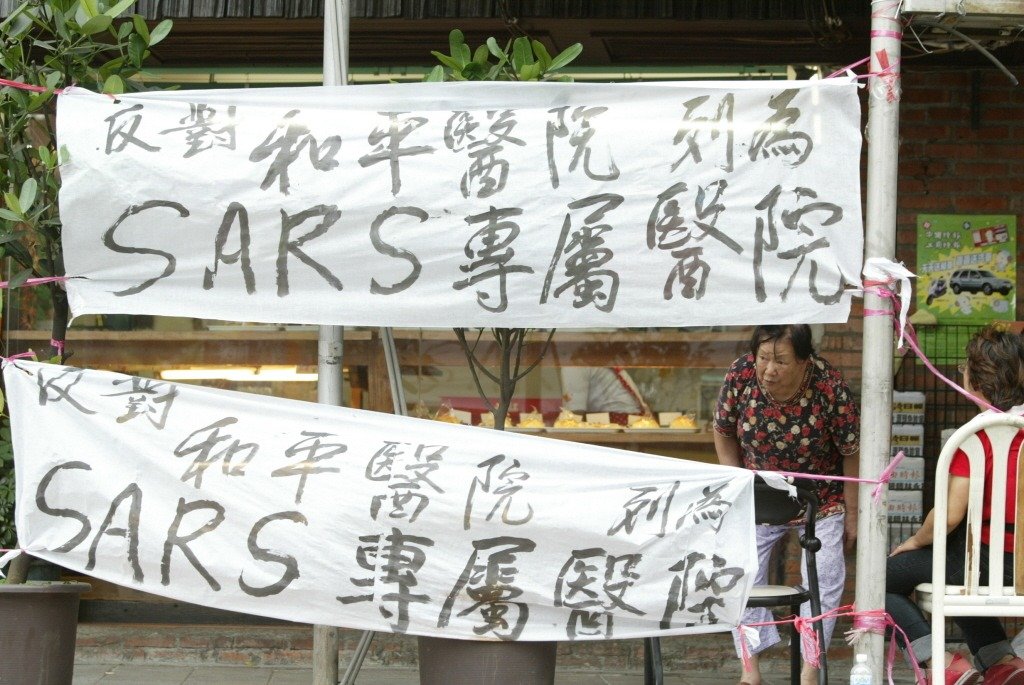 反對和平醫院列為
SARS專屬醫院
反對和平醫院列為
SARS專屬醫院